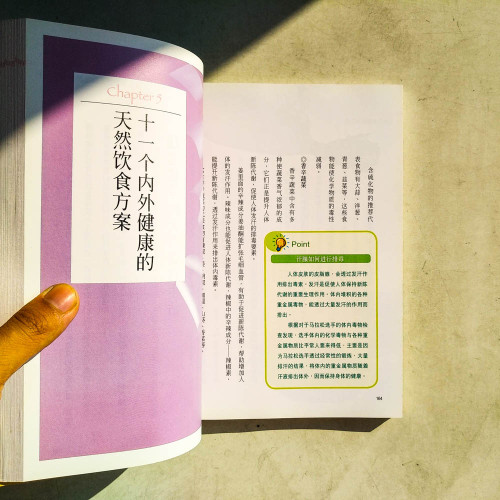 Chapter 5
十一个内外健康的
天然饮食方案
含硫化物的推荐代
表食物有大蒜、洋葱、
青葱、韭菜等，这些食
物能使化学物质的毒性
减弱。
◎香辛蔬菜
香辛蔬菜中含有多
种使蔬菜香气浓郁的成
分，它们正是提升人体
新陈代谢，促使人体发汗的排毒要素。
姜里面的辛辣成分姜油酮能扩张毛细血管，有助于促进新陈代谢，帮助增加人
体的发汗作用。辣味成分也能促进人体新陈代谢，辣椒中的辛辣成分——辣椒素，
能提升新陈代谢，透过发汗作用来排出体内毒素。
Point
汗腺如何进行排毒
人体皮肤的皮脂腺，会透过发汗作
用排出毒素。发汗是促使人体保持新陈
代谢的重要生理作用，体内堆积的各种
重金属毒物，能透过大量发汗的作用而
排出。
根据对于马拉松选手的体内毒物检
查发现，选手体内的化学毒物与各种重
金属物质比平常人要来得低，主要是因
为马拉松选手透过经常性的锻炼，大量
排汗的结果，将体内的重金属物质随着
汗液排出体外，因而保持身体的健康。
164